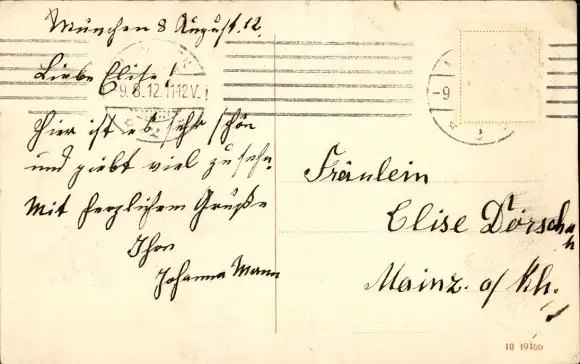 München 8 August. 12.
Liebe Elise!
9.8.12.11-12V.
Hier ist es sehr schön
und giebt viel zu sehn.
Mit herzlichem Grüße
Ihre
Johanna Mann
-9
Fräulein
Elise Dörschah
Mainz. a/Rh.
10 19466